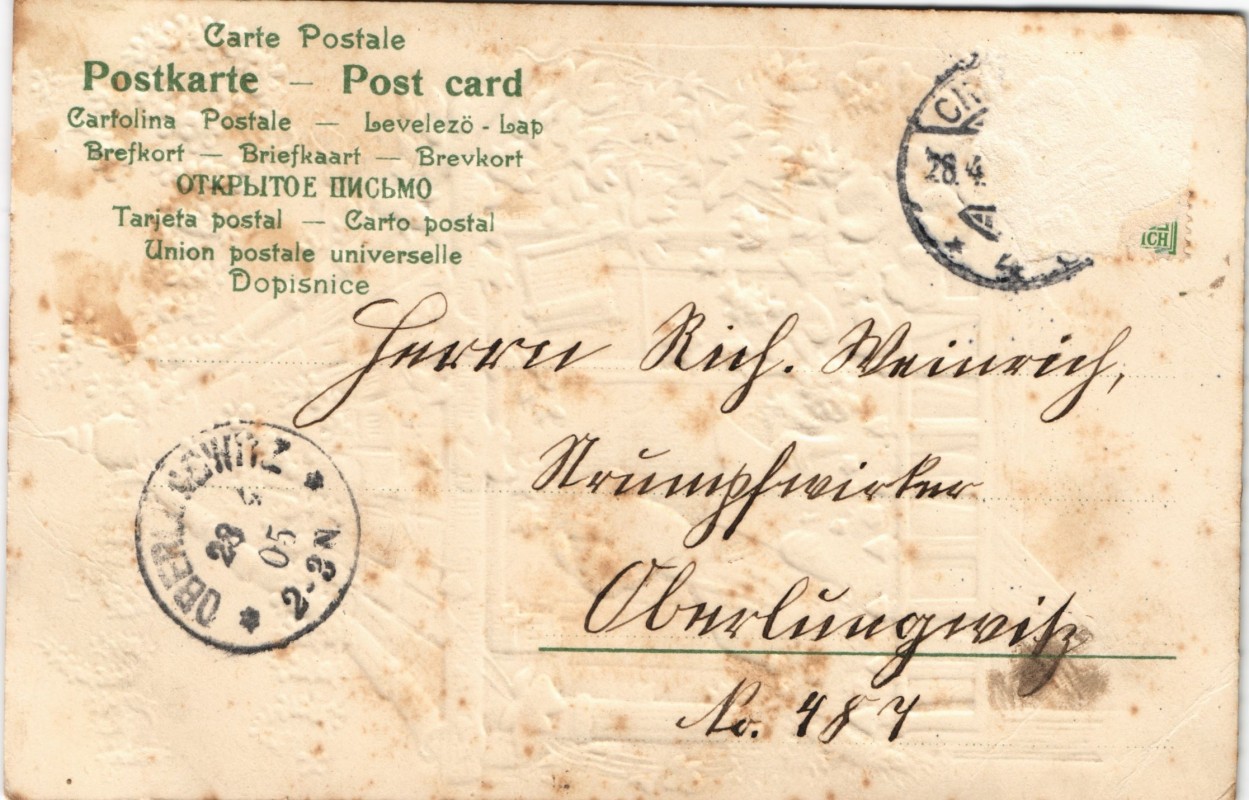 Carte Postale
Postkarte — Post card
Cartolina Postale — Levelezö - Lap
Brefkort — Briefkaart — Brevkort
ОТКРЫТОЕ ПИСЬМО
Tarjeta postal — Carto postal
Union postale universelle
Dopisnice
28.4
ICH
Herrn Rich. Weinrich,
Strumpfwirker
Oberlungwitz
No. 487
OBERLUNGWITZ
28
05
2-3N